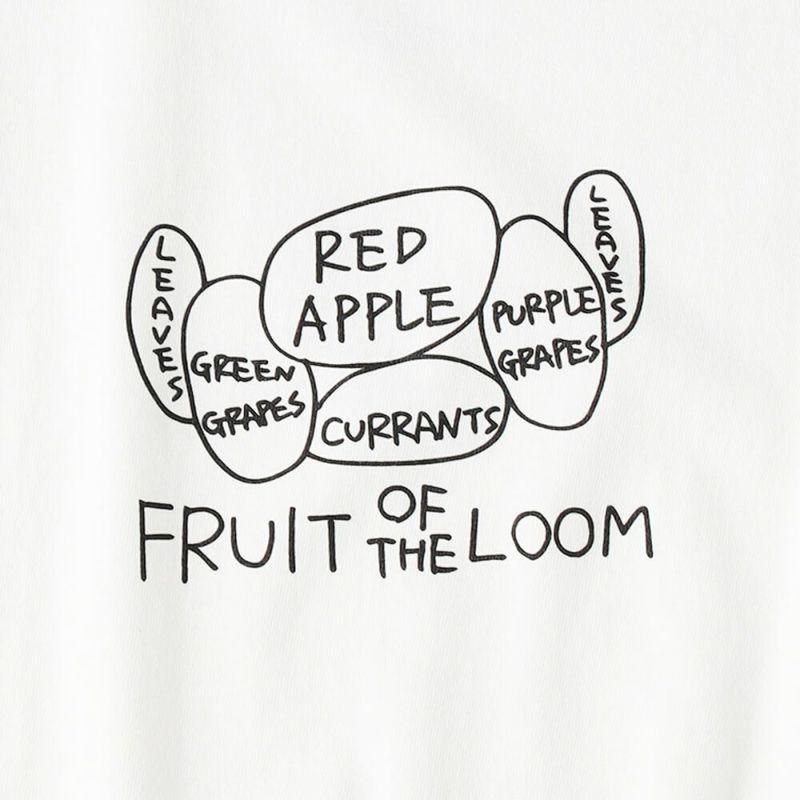 LEAVES
RED
APPLE
LEAVES
GREEN
GRAPES
PURPLE
GRAPES
CURRANTS
FRUIT OF THE LOOM